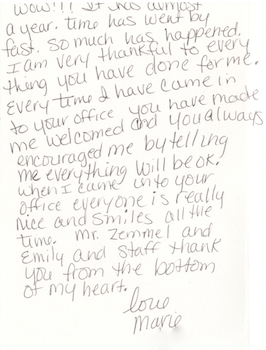 Wow!!! It has almost
a year. time has went by
fast. So much has happened.
I am very thankful to every
thing you have done for me.
Every time I have came in
to your office you have made
me welcomed and you always
encouraged me by telling
me everything will be ok.
when I came into your
office everyone is really
nice and smiles all the
time. Mr. Zemmel and
Emily and staff thank
you from the bottom
of my heart.
love
Marie